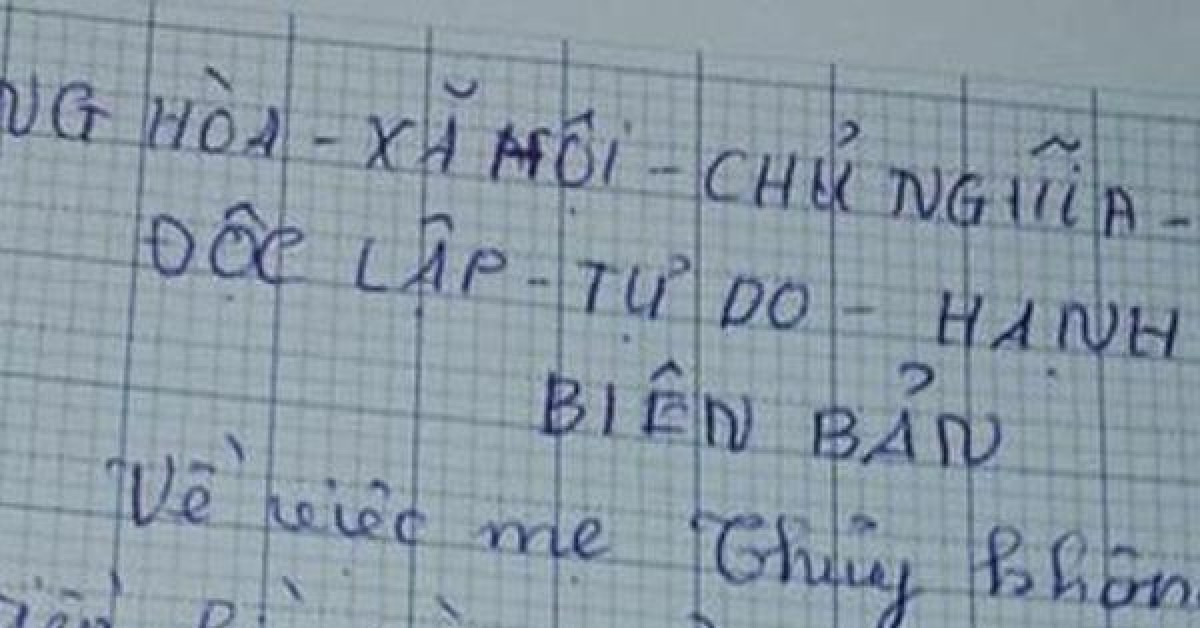 NG HÒA - XÃ HỘI - CHỦ NGHĨA -
ĐỘC LẬP - TỰ DO - HẠNH
BIÊN BẢN
Về việc mẹ Thủy khôn